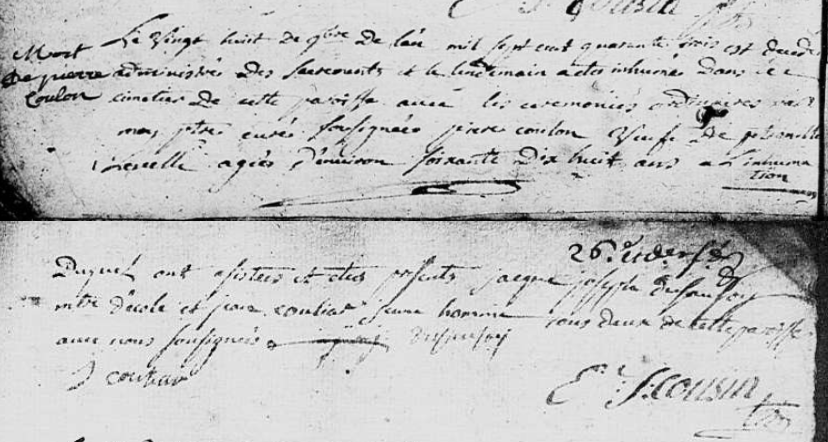 E. J. Cousin
Mort
De pierre
Coulon
Le vingt huit de 9bre de l'an mil sept cent quarante trois est decedé
administrés des sacrements et le lendemain a etes inhumé dans le
cimetier De cette paroisse avec les ceremonies ordinaires par
moy ptre curé soussignée pierre coulon veuf De petronille
agiés d'environ soixante Dix huit ans a L'inhuma
tion
26e et dernier
Duquel ont assistes et etes presents jacque joseph dusausoy
mtre d'ecole et jean coutiau jeune homme tous deux de cette paroisse
avec nous soussignés dusausoy
J coutiau
E. J. Cousin